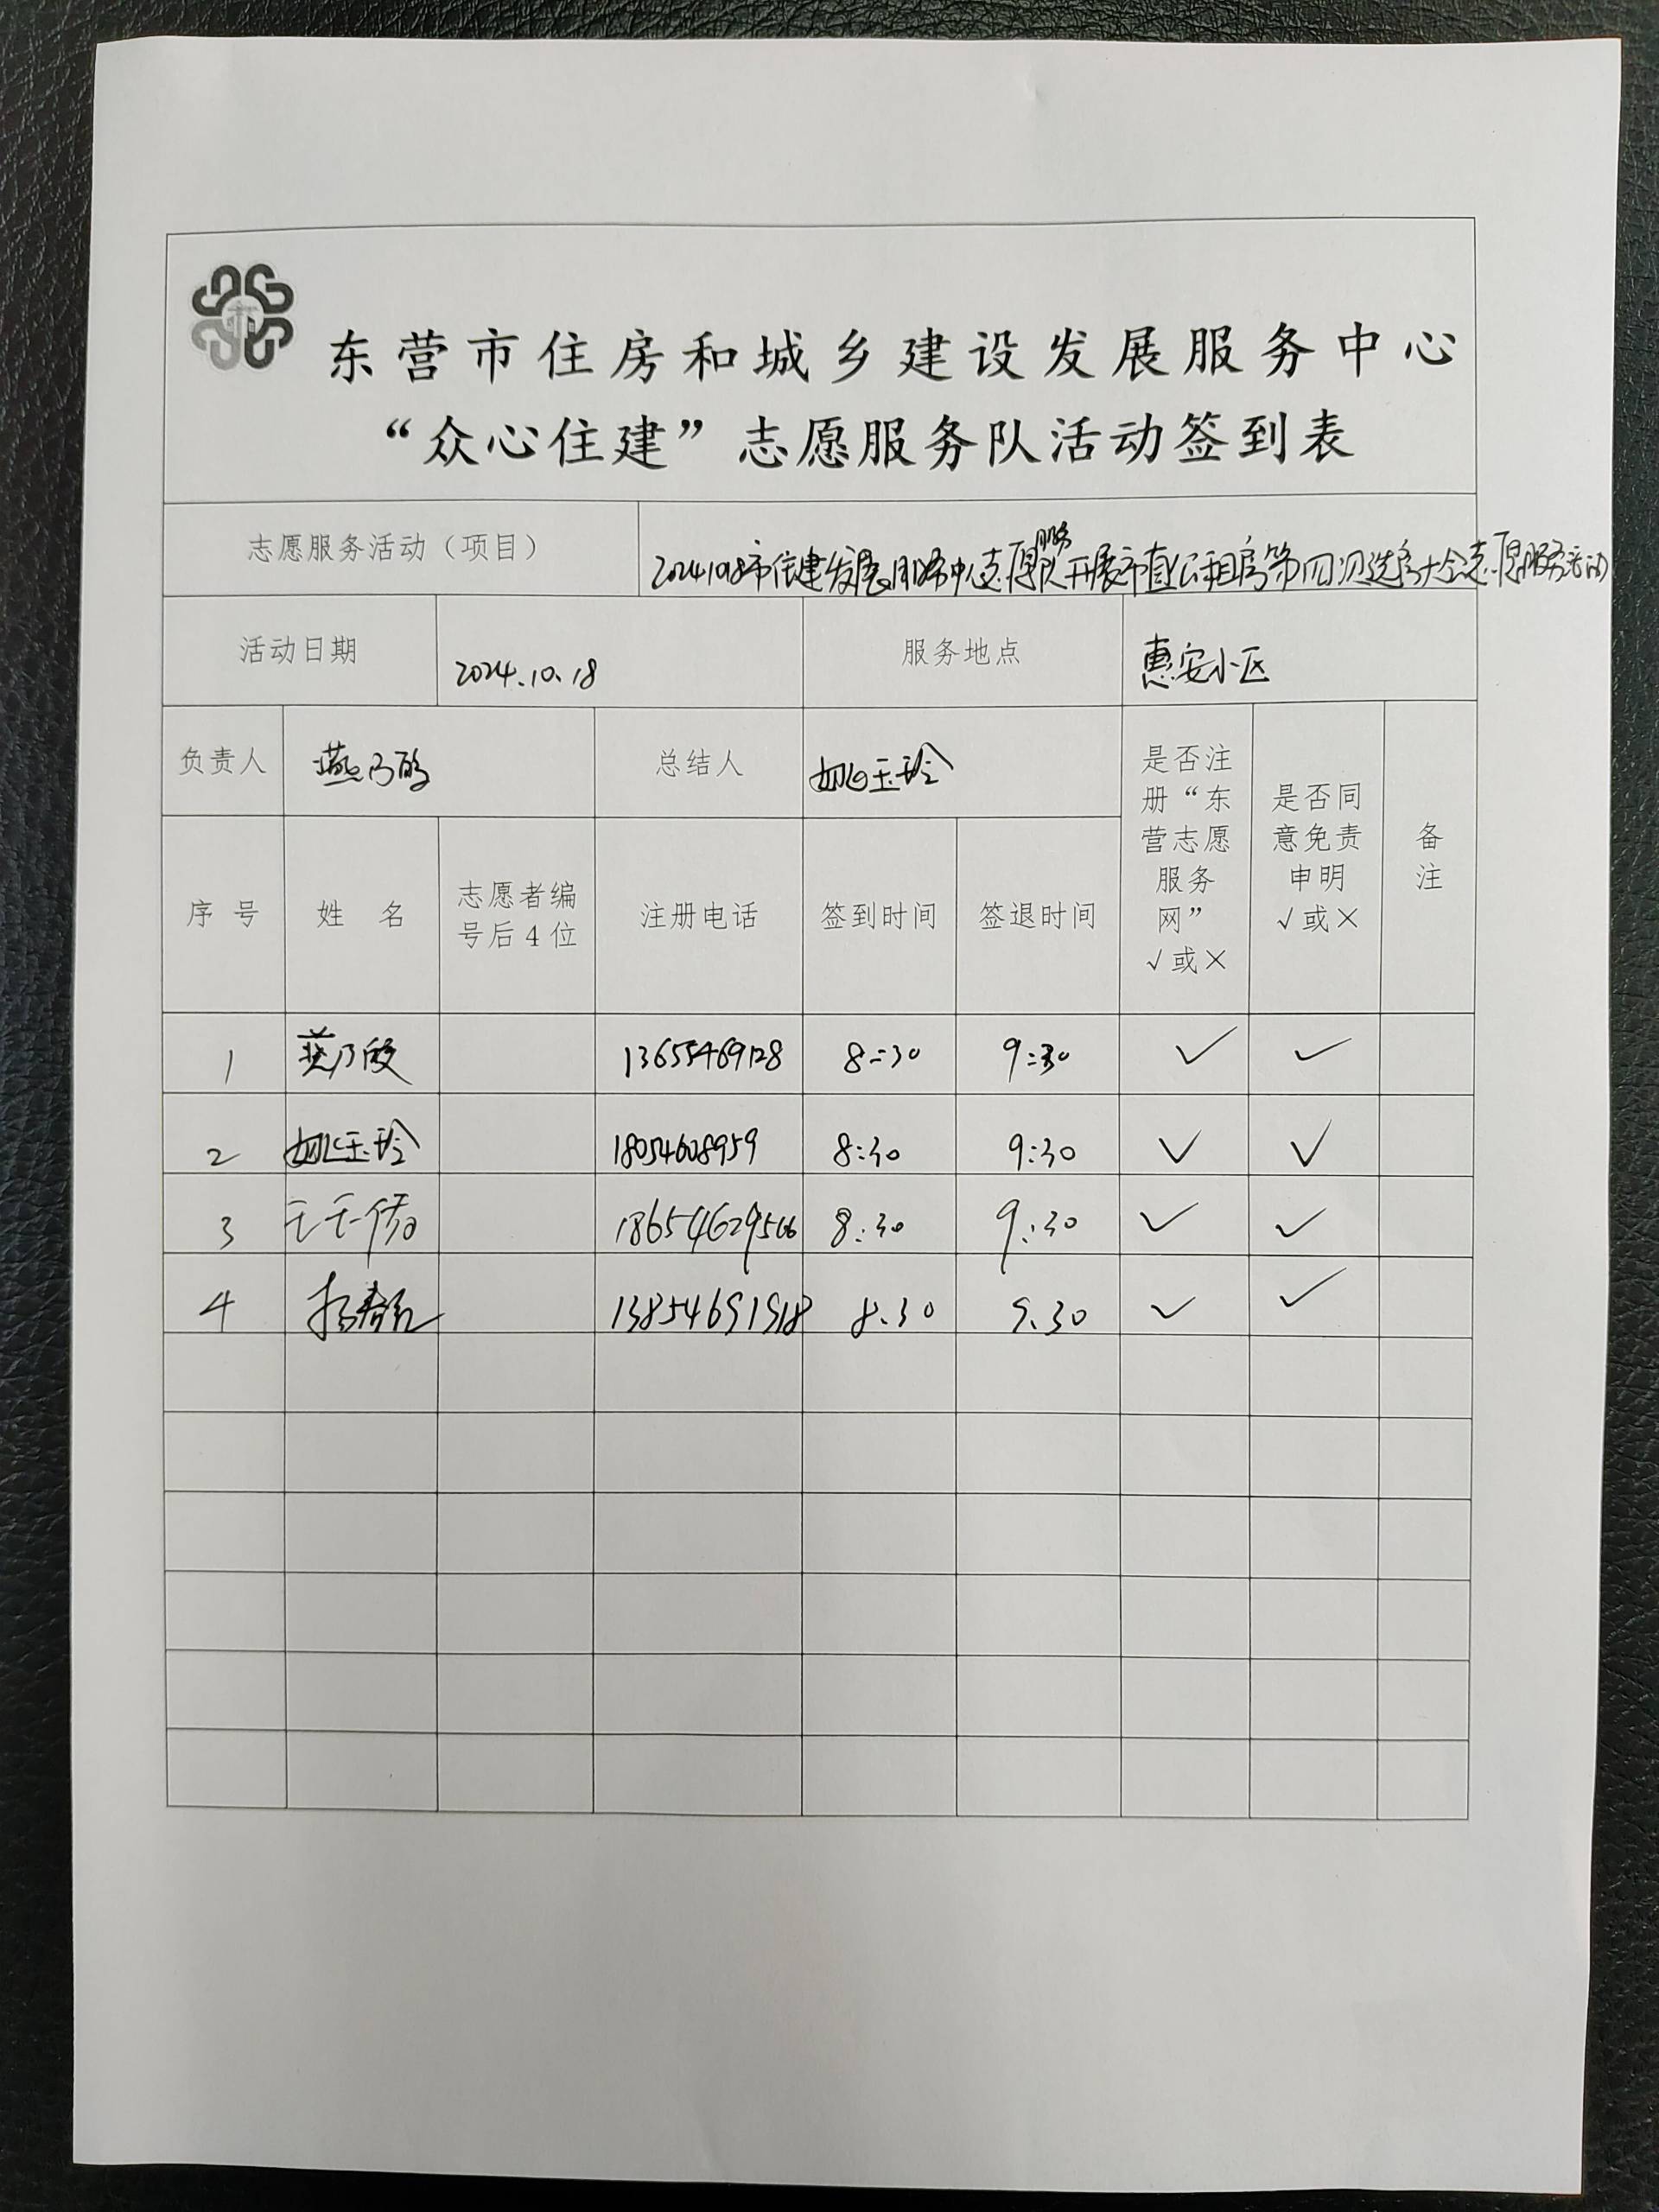 东营市住房和城乡建设发展服务中心
“众心住建”志愿服务队活动签到表
志愿服务活动（项目） 20241018市住建发展服务中心志愿服务队开展市直公租房第四次选房大会志愿服务活动
活动日期 2024.10.18 服务地点 惠安小区
负责人 燕乃 总结人 姚玉玲 是否注册“东营志愿服务网”√或× 是否同意免责申明√或× 备注
序号 姓名 志愿者编号后4位 注册电话 签到时间 签退时间
1 燕乃 13655469128 8:30 9:30 ✓ ✓
2 姚玉玲 18054608959 8:30 9:30 ✓ ✓
3 18654629566 8:30 9:30 ✓ ✓
4 13854691918 8.30 9.30 ✓ ✓